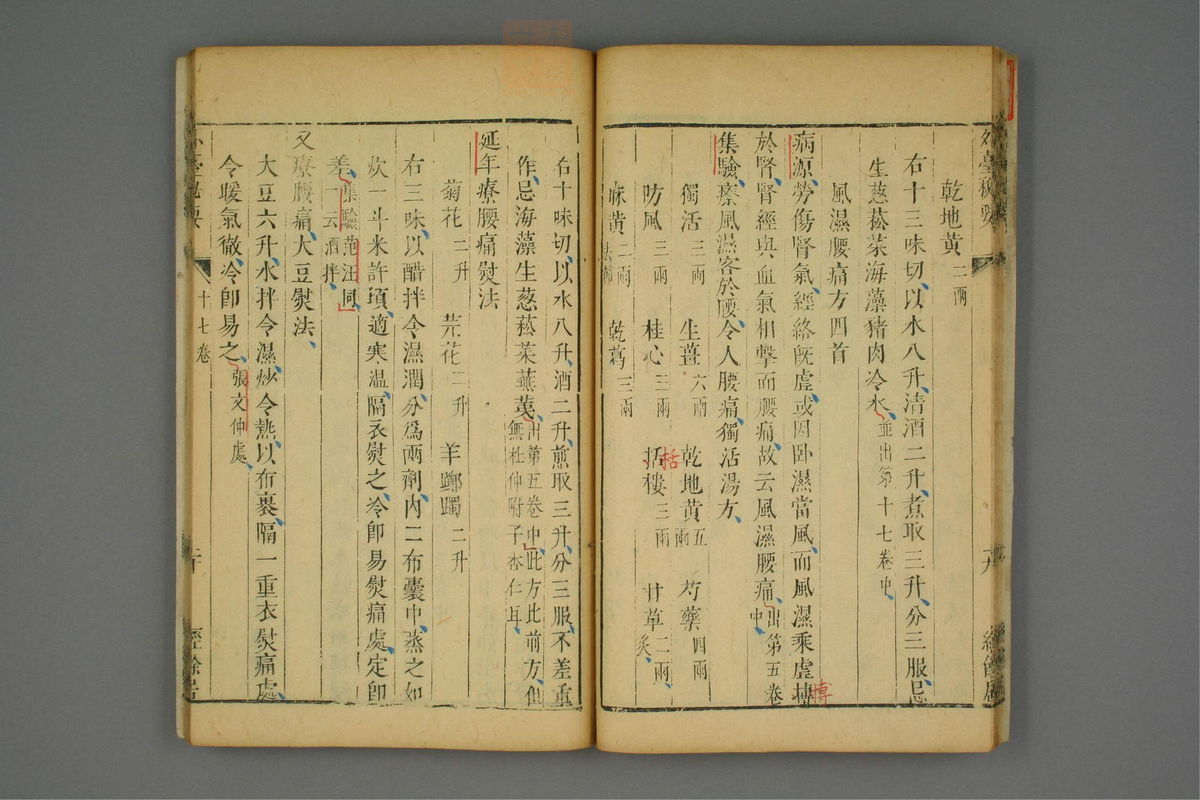 乾地黃二兩
右十三味切以水八升清酒二升煮取三升分三服忌
生葱菘菜海藻豬肉冷水並出第十七卷中
風濕腰痛方四首
病源勞傷腎氣經絡旣虛或因卧濕當風而風濕乘虛摶
博
於腎腎經與血氣相擊而腰痛故云風濕腰痛出第五卷中
集驗療風濕客於腰令人腰痛獨活湯方
獨活三兩 生薑六兩 乾地黃五兩 芍藥四兩
防風三兩 桂心三兩 括樓三兩 甘草二兩炙
栝
麻黃二兩去節 乾葛三兩
右十味切以水八升酒二升煎取三升分三服不差重
作忌海藻生葱菘菜蕪荑出第五卷中此方比前方但無杜仲附子杏仁耳
延年療腰痛熨法
菊花二升 芫花二升 羊躑躅二升
右三味以醋拌令濕潤分爲兩劑內二布囊中蒸之如
炊一斗米許頃適寒溫隔衣熨之冷卽易熨痛處定卽
差集驗范汪同一云酒拌
又療腰痛大豆熨法
大豆六升水拌令濕炒令熱以布裹隔一重衣熨痛處
令暖氣徹冷卽易之張文仲處
外臺秘要 十七卷 二十 經餘居